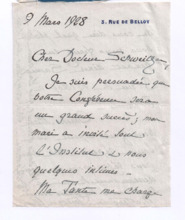 9 Mars 1928
2, RUE DE BELLOY
Cher Docteur Schweitzer,
Je suis persuadée que
votre Conférence sera
un grand succès; mon
mari a invité tout
l'Institut & nous
quelques intimes.
Ma Tante me charge